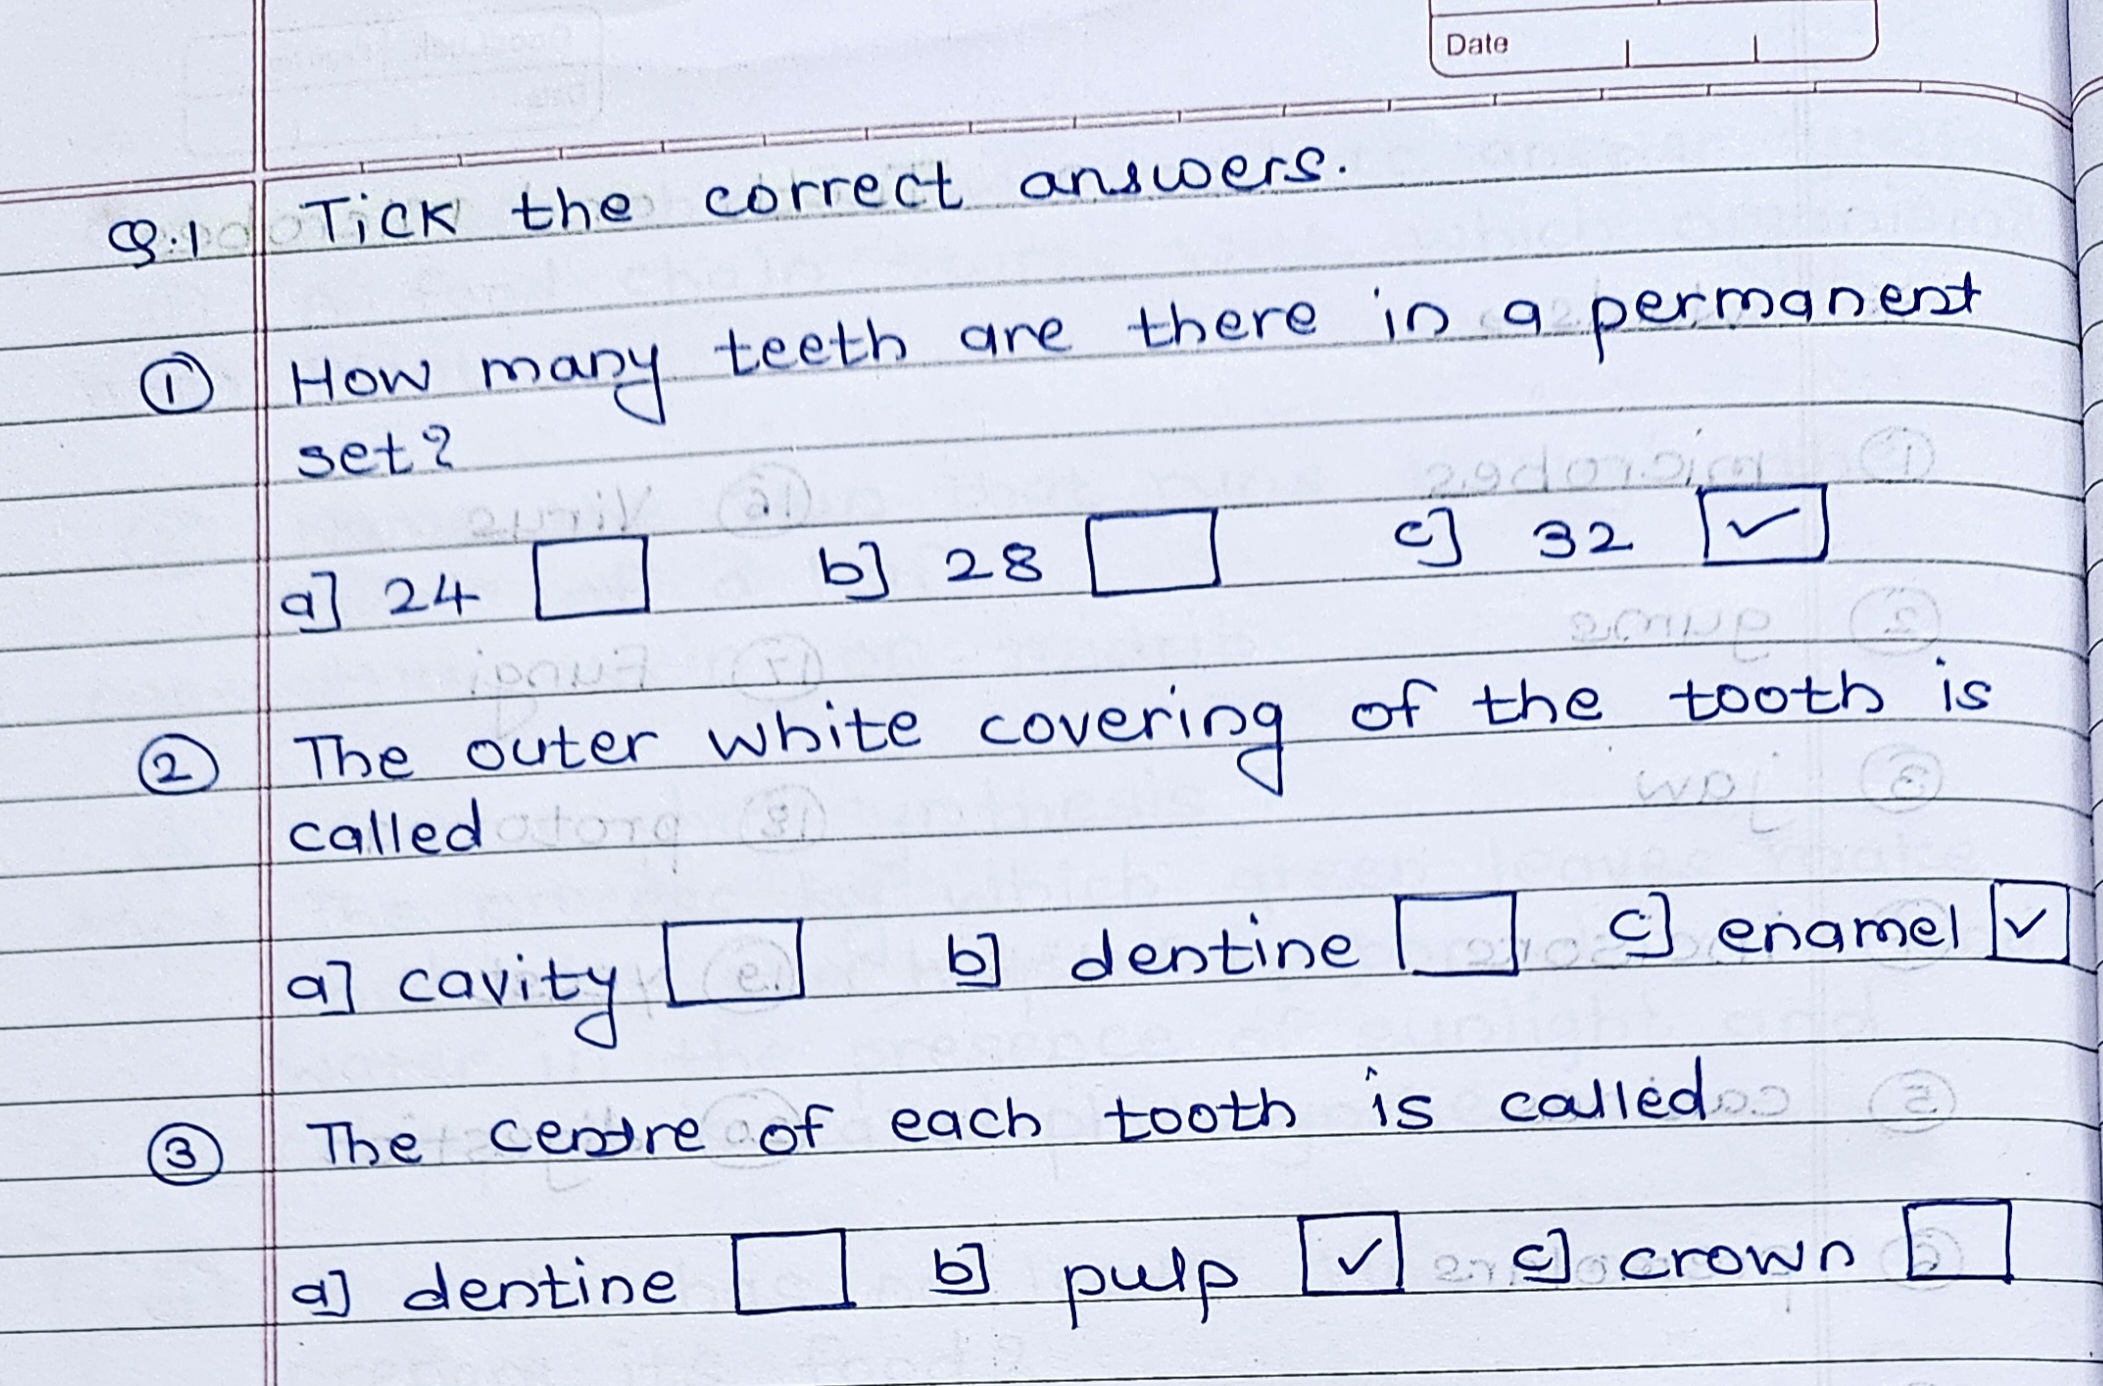 Date
Q.1 Tick the correct answers.
① How many teeth are there in a permanent
set?
a] 24 ☐ b] 28 ☐ c] 32 ☑
② The outer white covering of the tooth is
called
a] cavity ☐ b] dentine ☐ c] enamel ☑
③ The centre of each tooth is called
a] dentine ☐ b] pulp ☑ c] crown ☐